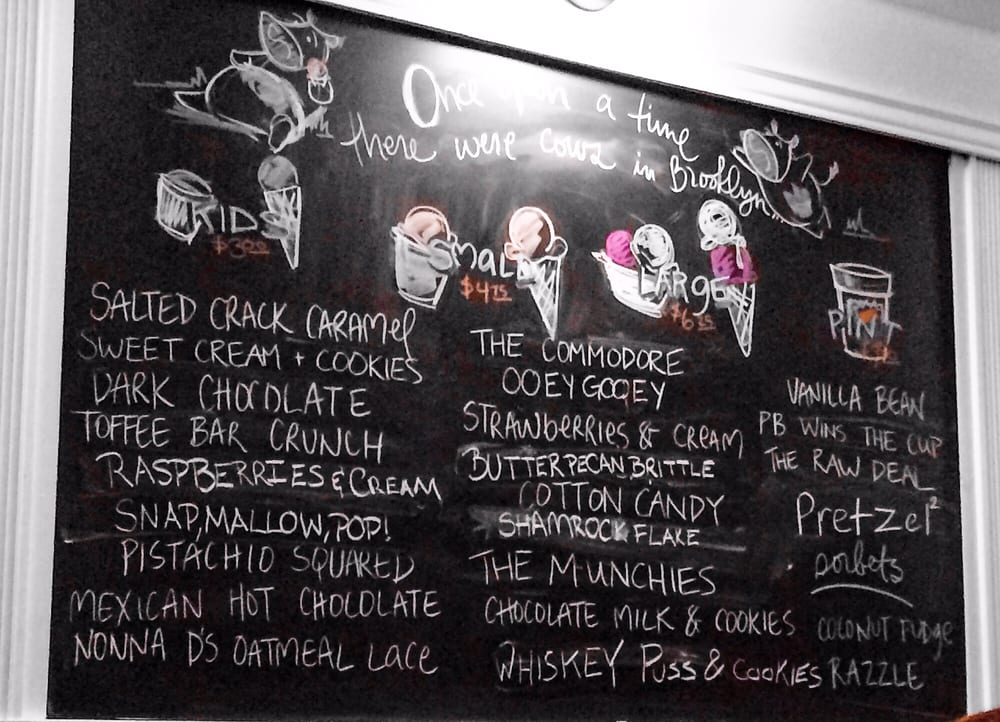 Once upon a time
there were cows in Brooklyn
KID
$3
SMALL
$4.75
LARGE
$6
PINT
SALTED CRACK CARAMEL
SWEET CREAM + COOKIES
DARK CHOCOLATE
TOFFEE BAR CRUNCH
RASPBERRIES & CREAM
SNAP, MALLOW, POP!
PISTACHIO SQUARED
MEXICAN HOT CHOCOLATE
NONNA D'S OATMEAL LACE
THE COMMODORE
OOEY GOOEY
STRAWBERRIES & CREAM
BUTTER PECAN BRITTLE
COTTON CANDY
SHAMROCK FLAKE
THE MUNCHIES
CHOCOLATE MILK & COOKIES
WHISKEY PUSS & COOKIES
VANILLA BEAN
PB WINS THE CUP
THE RAW DEAL
Pretzel²
sorbets
COCONUT FUDGE
RAZZLE